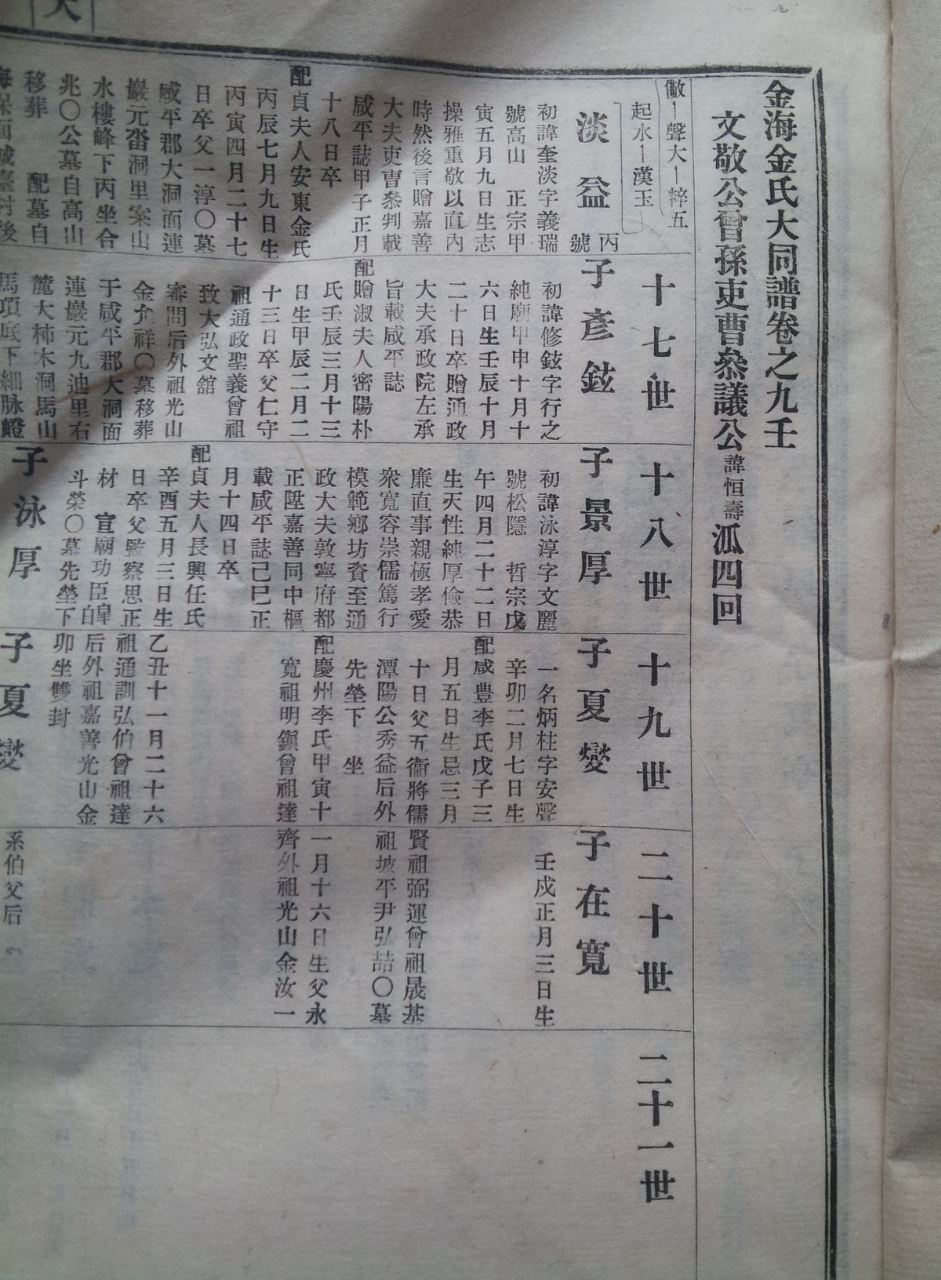 金海金氏大同譜卷之九壬
文敬公曾孫吏曹叅議公諱恒壽派四回
敒ー聲大ー粹五
起水ー漢玉
淡益
丙號
初諱奎淡字義瑞
號高山 正宗甲
寅五月九日生志
操雅重敬以直內
時然後言贈嘉善
大夫吏曹叅判載
咸平誌甲子正月
十八日卒
配貞夫人安東金氏
丙辰七月九日生
丙寅四月二十七
日卒父一淳〇墓
咸平郡大洞面連
巖元沓洞里案山
水樓峰下丙坐合
兆〇公墓自高山
移葬 配墓自
十七世
子彥鉉
初諱修鉉字行之
純廟甲申十月十
六日生壬辰十月
二十日卒贈通政
大夫承政院左承
旨載咸平誌
配贈淑夫人密陽朴
氏壬辰三月十三
日生甲辰二月二
十三日卒父仁守
祖通政聖義曾祖
致大弘文舘
審問后外祖光山
金允祥〇墓移葬
于咸平郡大洞面
連巖元九迪里右
麓大柿木洞馬山
馬項底下細脉嶝
十八世
子景厚
初諱泳淳字文麗
號松隱 哲宗戊
午四月二十二日
生天性純厚儉恭
廉直事親極孝愛
衆寬容崇儒篤行
模範鄉坊資至通
政大夫敦寧府都
正陞嘉善同中樞
載咸平誌己巳正
月十四日卒
配貞夫人長興任氏
辛酉五月三日生
日卒父監察思正
材 宣廟功臣
斗榮〇墓先塋下
子泳厚
十九世
子夏燮
一名炳柱字安聲
辛卯二月七日生
配咸豊李氏戊子三
月五日生忌三月
十日父五衞將儒
潭陽公秀益后外
先塋下 坐
配慶州李氏甲寅十
寬祖明鎭曾祖達
乙丑十一月二十六
祖通訓弘伯曾祖達
后外祖嘉善光山金
卯坐雙封
子夏燮
二十世
子在寬
壬戌正月三日生
賢祖弼運曾祖晟基
祖坡平尹弘喆〇墓
一月十六日生父永
齊外祖光山金汝一
系伯父后
二十一世